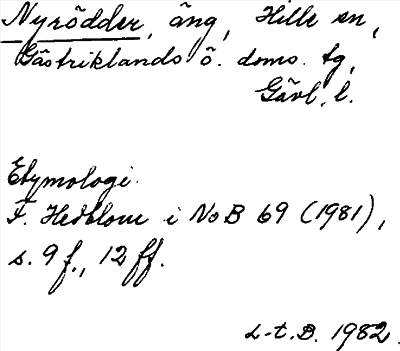 Nyrödder, äng, Hille sn,
Gästriklands ö. doms. tg,
Gävl. l.
Etymologi.
F. Hedblom i NoB 69 (1981),
s. 9 f., 12 ff.
L-t. B. 1982.